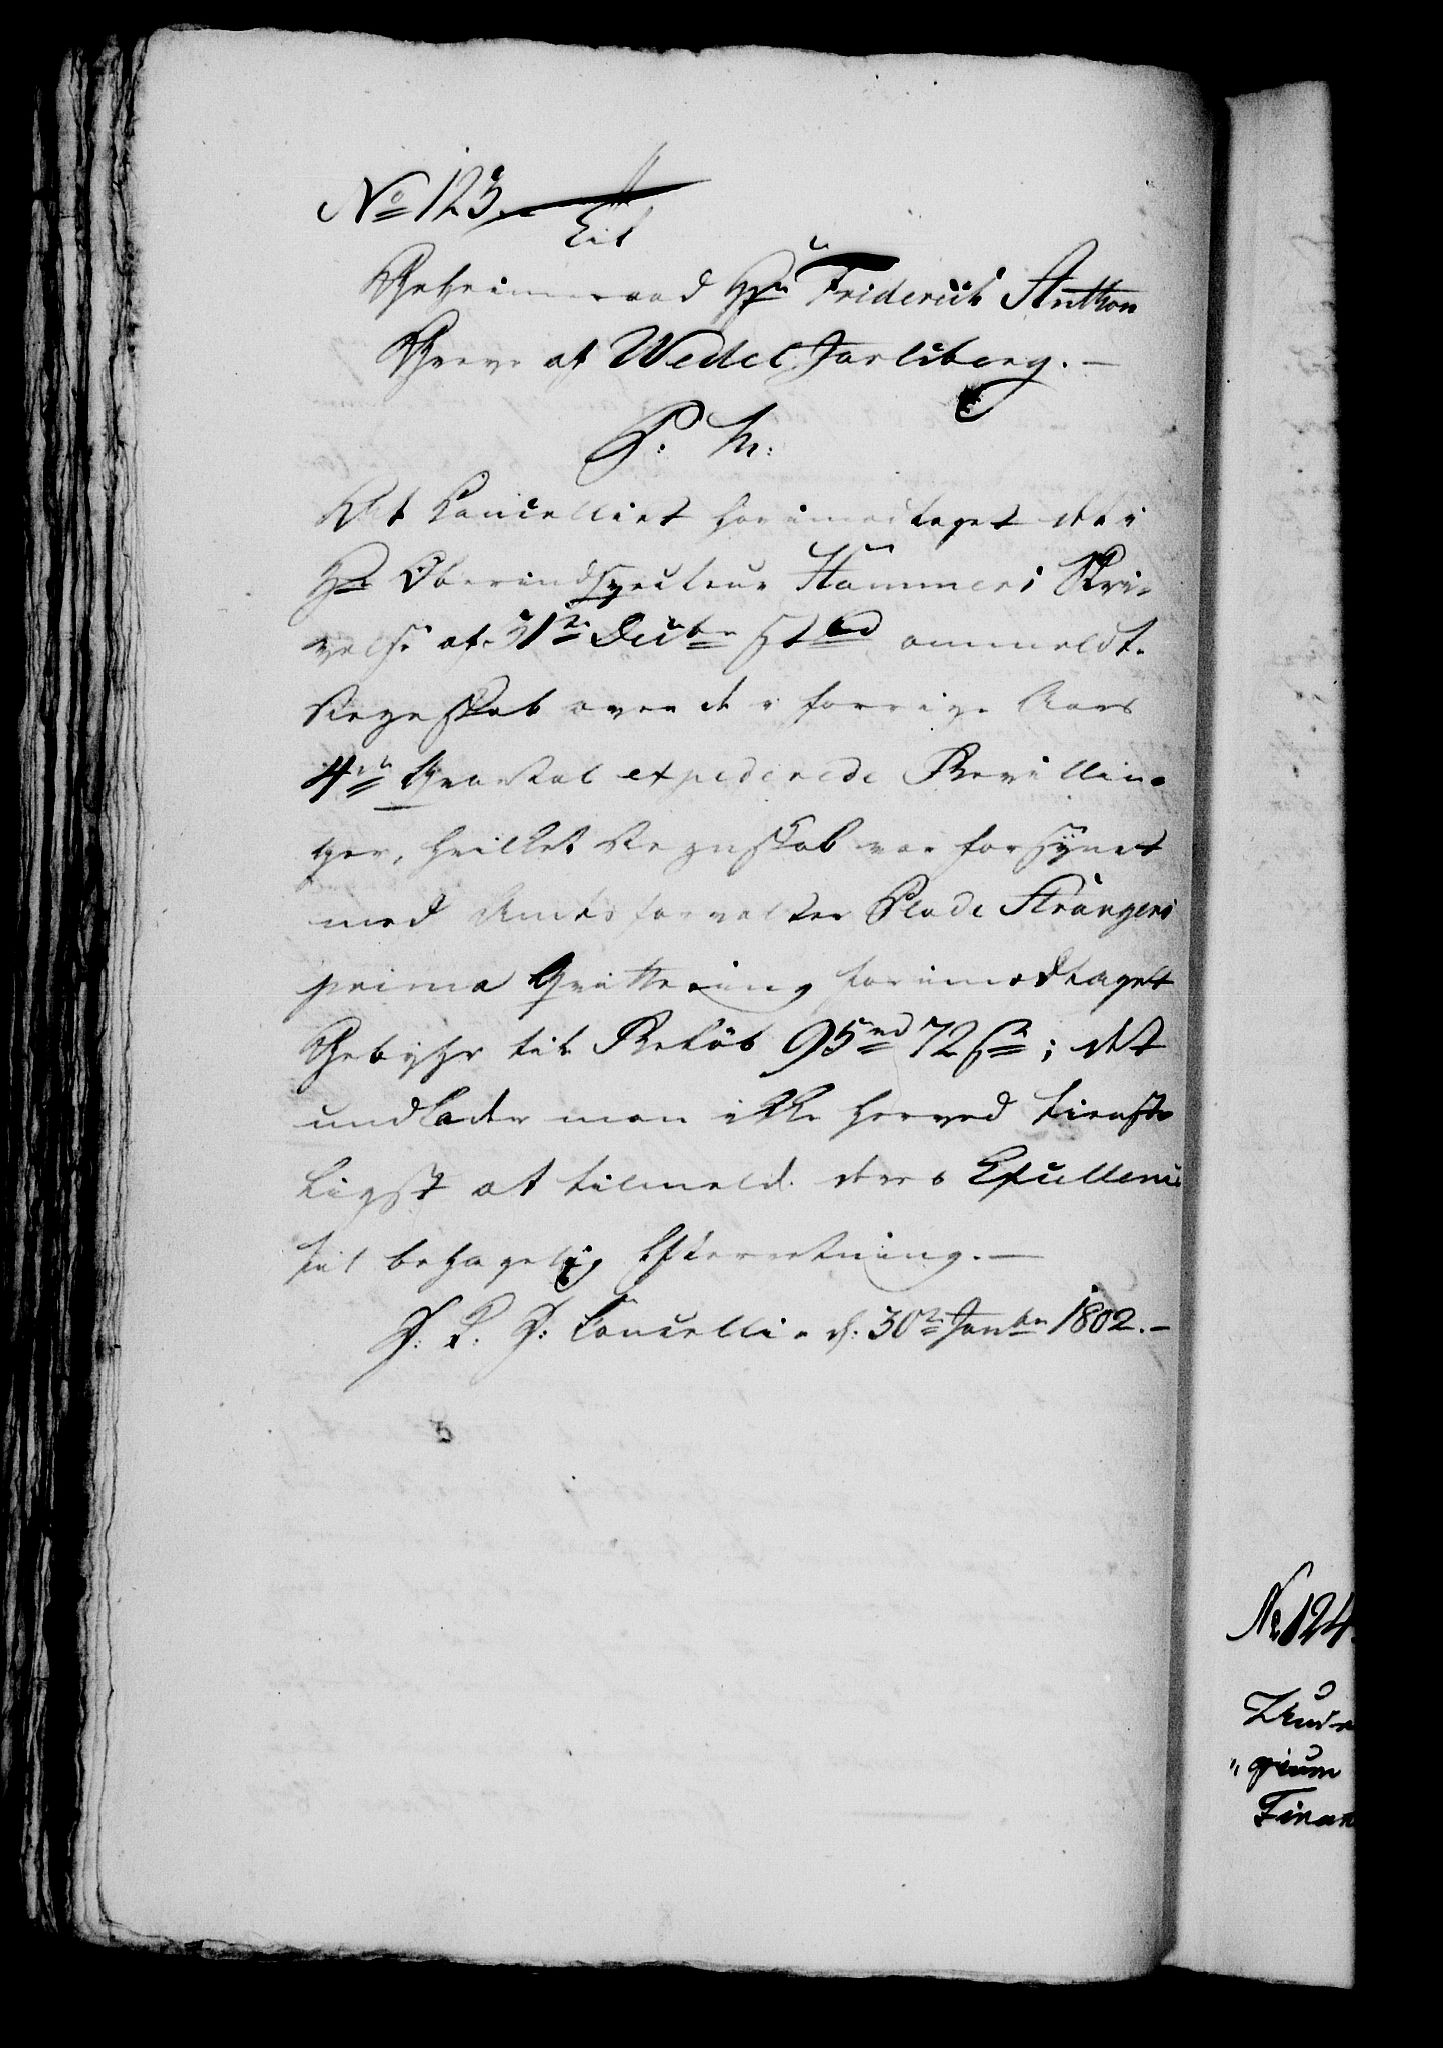 No 123.
Til
Geheimeraad Hr Friderich Anthon
Greve af Wedel Jarlsberg. —
P. M:
At Cancelliet har imodtaget det i
Hr Oberindspecteur Hammers Skri-
velse af 31te Decbr f. A. ommeldte
Regnskab over de i forrige Aars
4de Qvartal expederede Bevillin-
ger, hvilket Regnskab var forsynet
med Amtsforvalter Plade Strangers
prima Qvittering for imodtaget
Gebyhr til Beløb 95rd 72 s; det
undlader man ikke herved tienst-
ligst at tilmelde deres Excellence
til behagelig Efterretning. —
D. D. C: Cancellie d: 30te Janbr 1802. —
No 124.
Finan